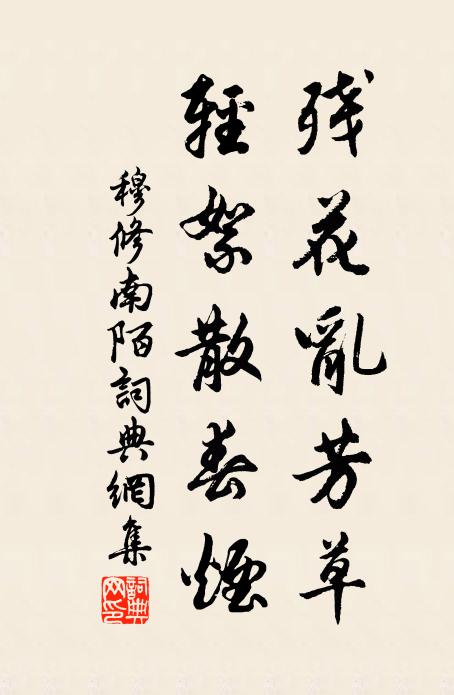 残花亂芳草
輕絮散春煙
穆修南陌詞典網集
詞典網印